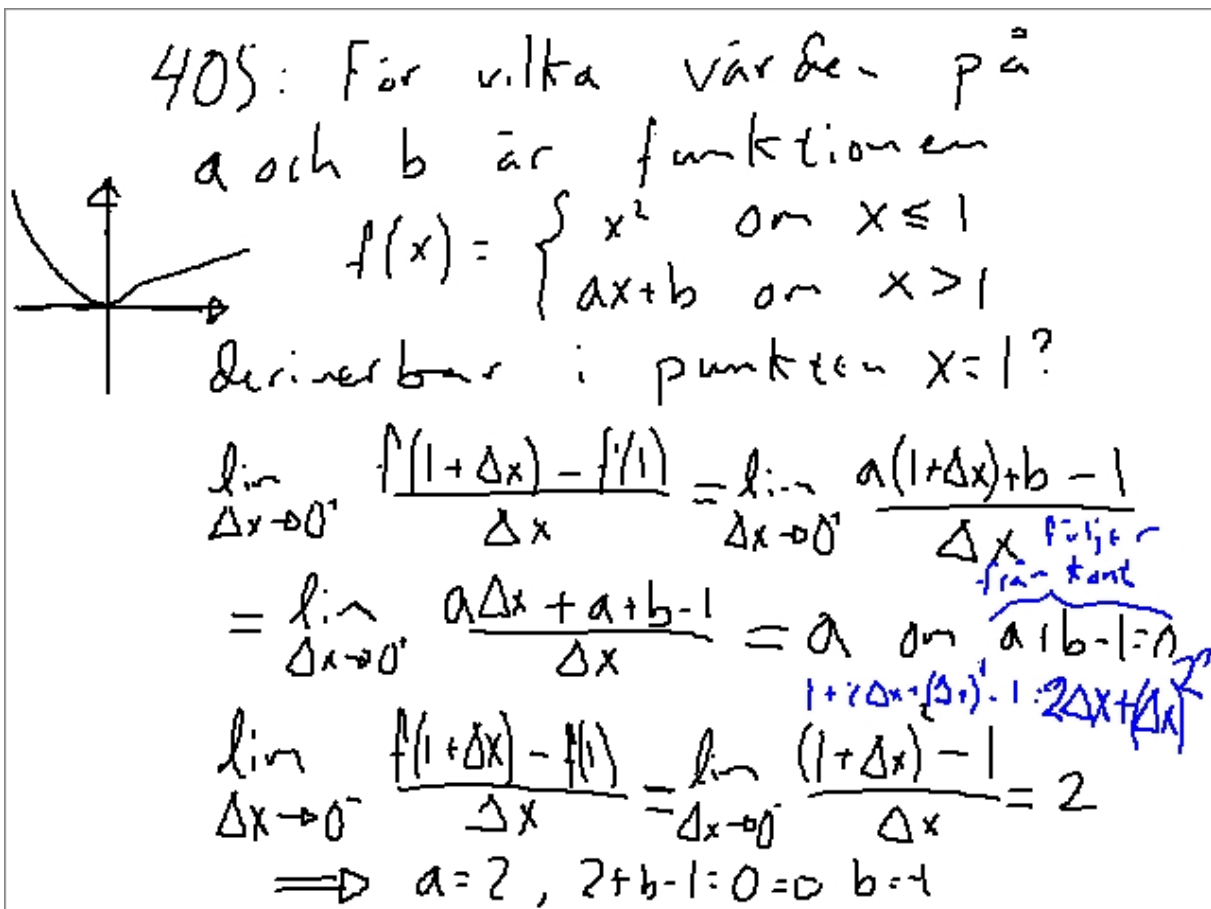 405: För vilka värden på
a och b är funktionen
f(x) = { x² om x ≤ 1
ax+b om x > 1
deriverbar i punkten x=1?
lim Δx→0⁺ (f(1+Δx) - f(1))/Δx = lim Δx→0⁺ (a(1+Δx)+b - 1)/Δx
följer
från kont
= lim Δx→0⁺ (aΔx + a+b-1)/Δx = a om a+b-1=0
1+2Δx+(Δx)²-1=2Δx+(Δx)²
lim Δx→0⁻ (f(1+Δx) - f(1))/Δx = lim Δx→0⁻ ((1+Δx)² - 1)/Δx = 2
⟹ a=2, 2+b-1=0 ⇒ b=-1